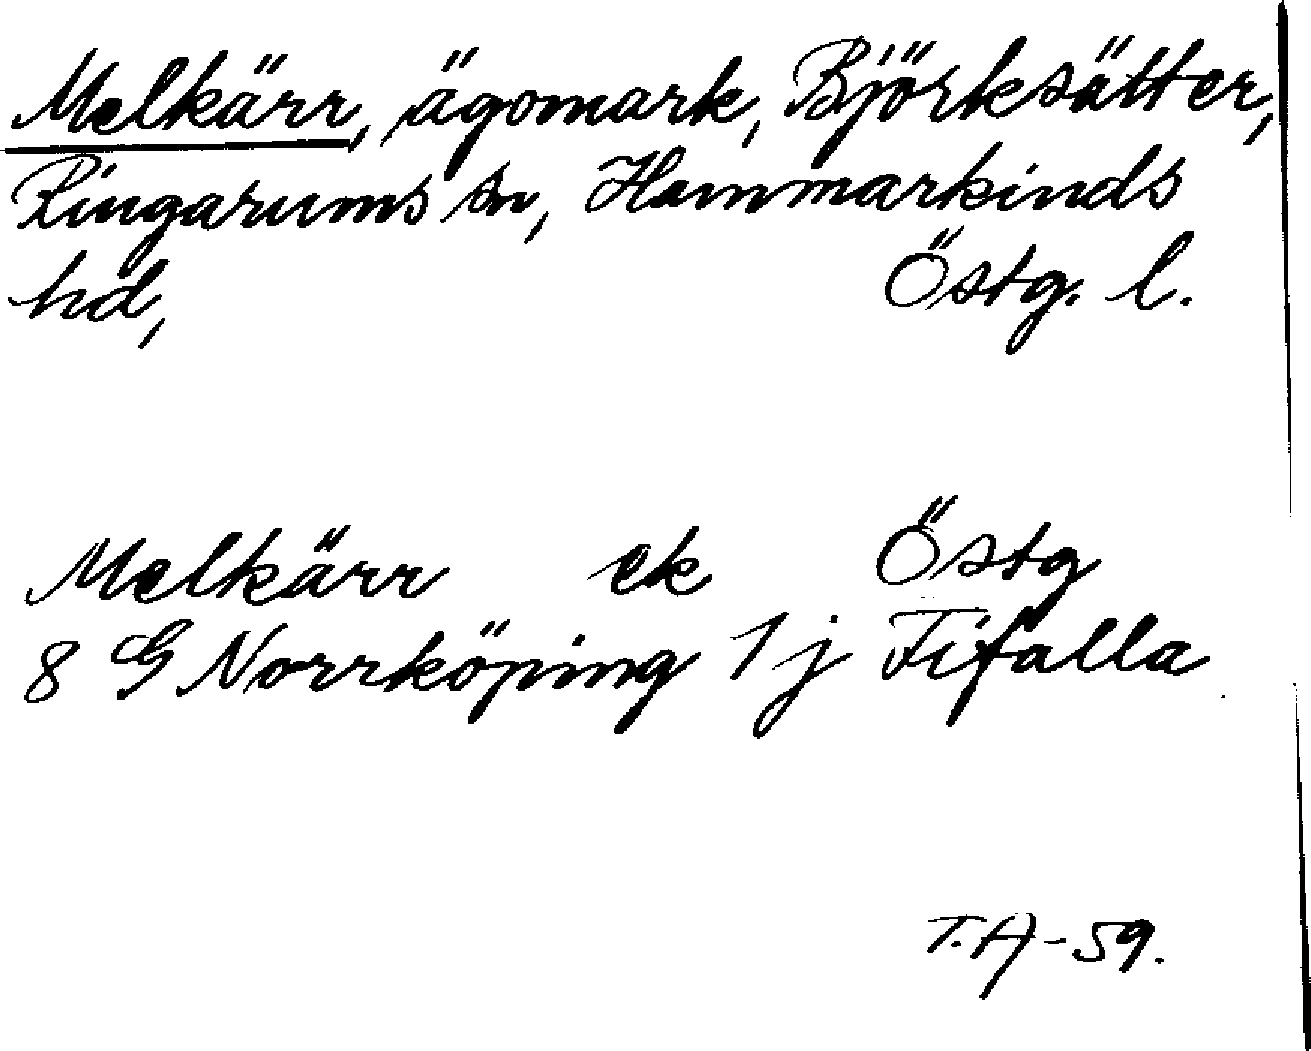 Melkärr, ägomark, Björksätter,
Ringarums sn, Hammarkinds
hd, Östg. l.
Melkärr ek Östg
8 G Norrköping 1 j Fifalla
T.A-59.